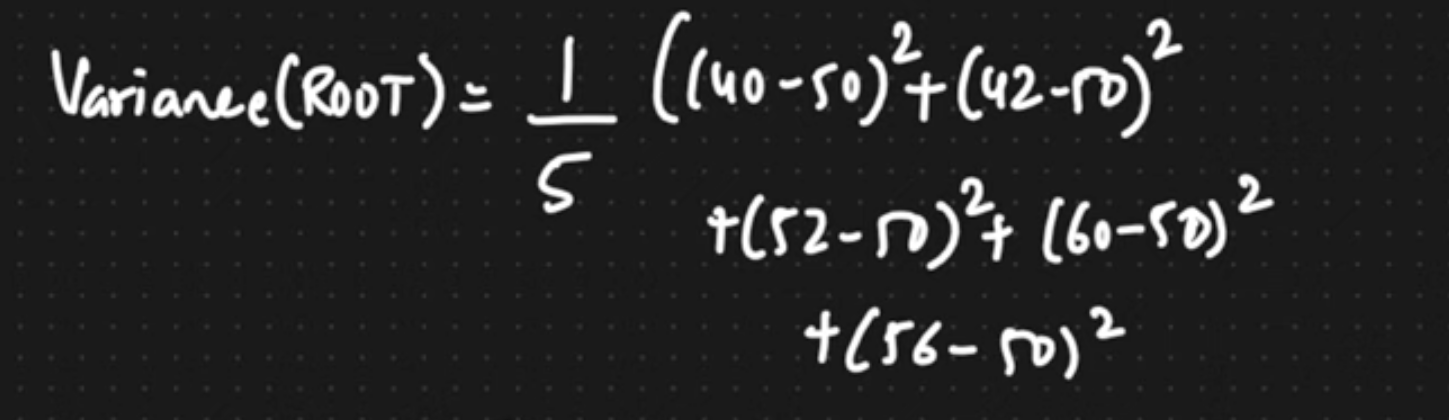 Variance(ROOT) = 1/5 ((40-50)²+(42-50)²
+(52-50)²+(60-50)²
+(56-50)²